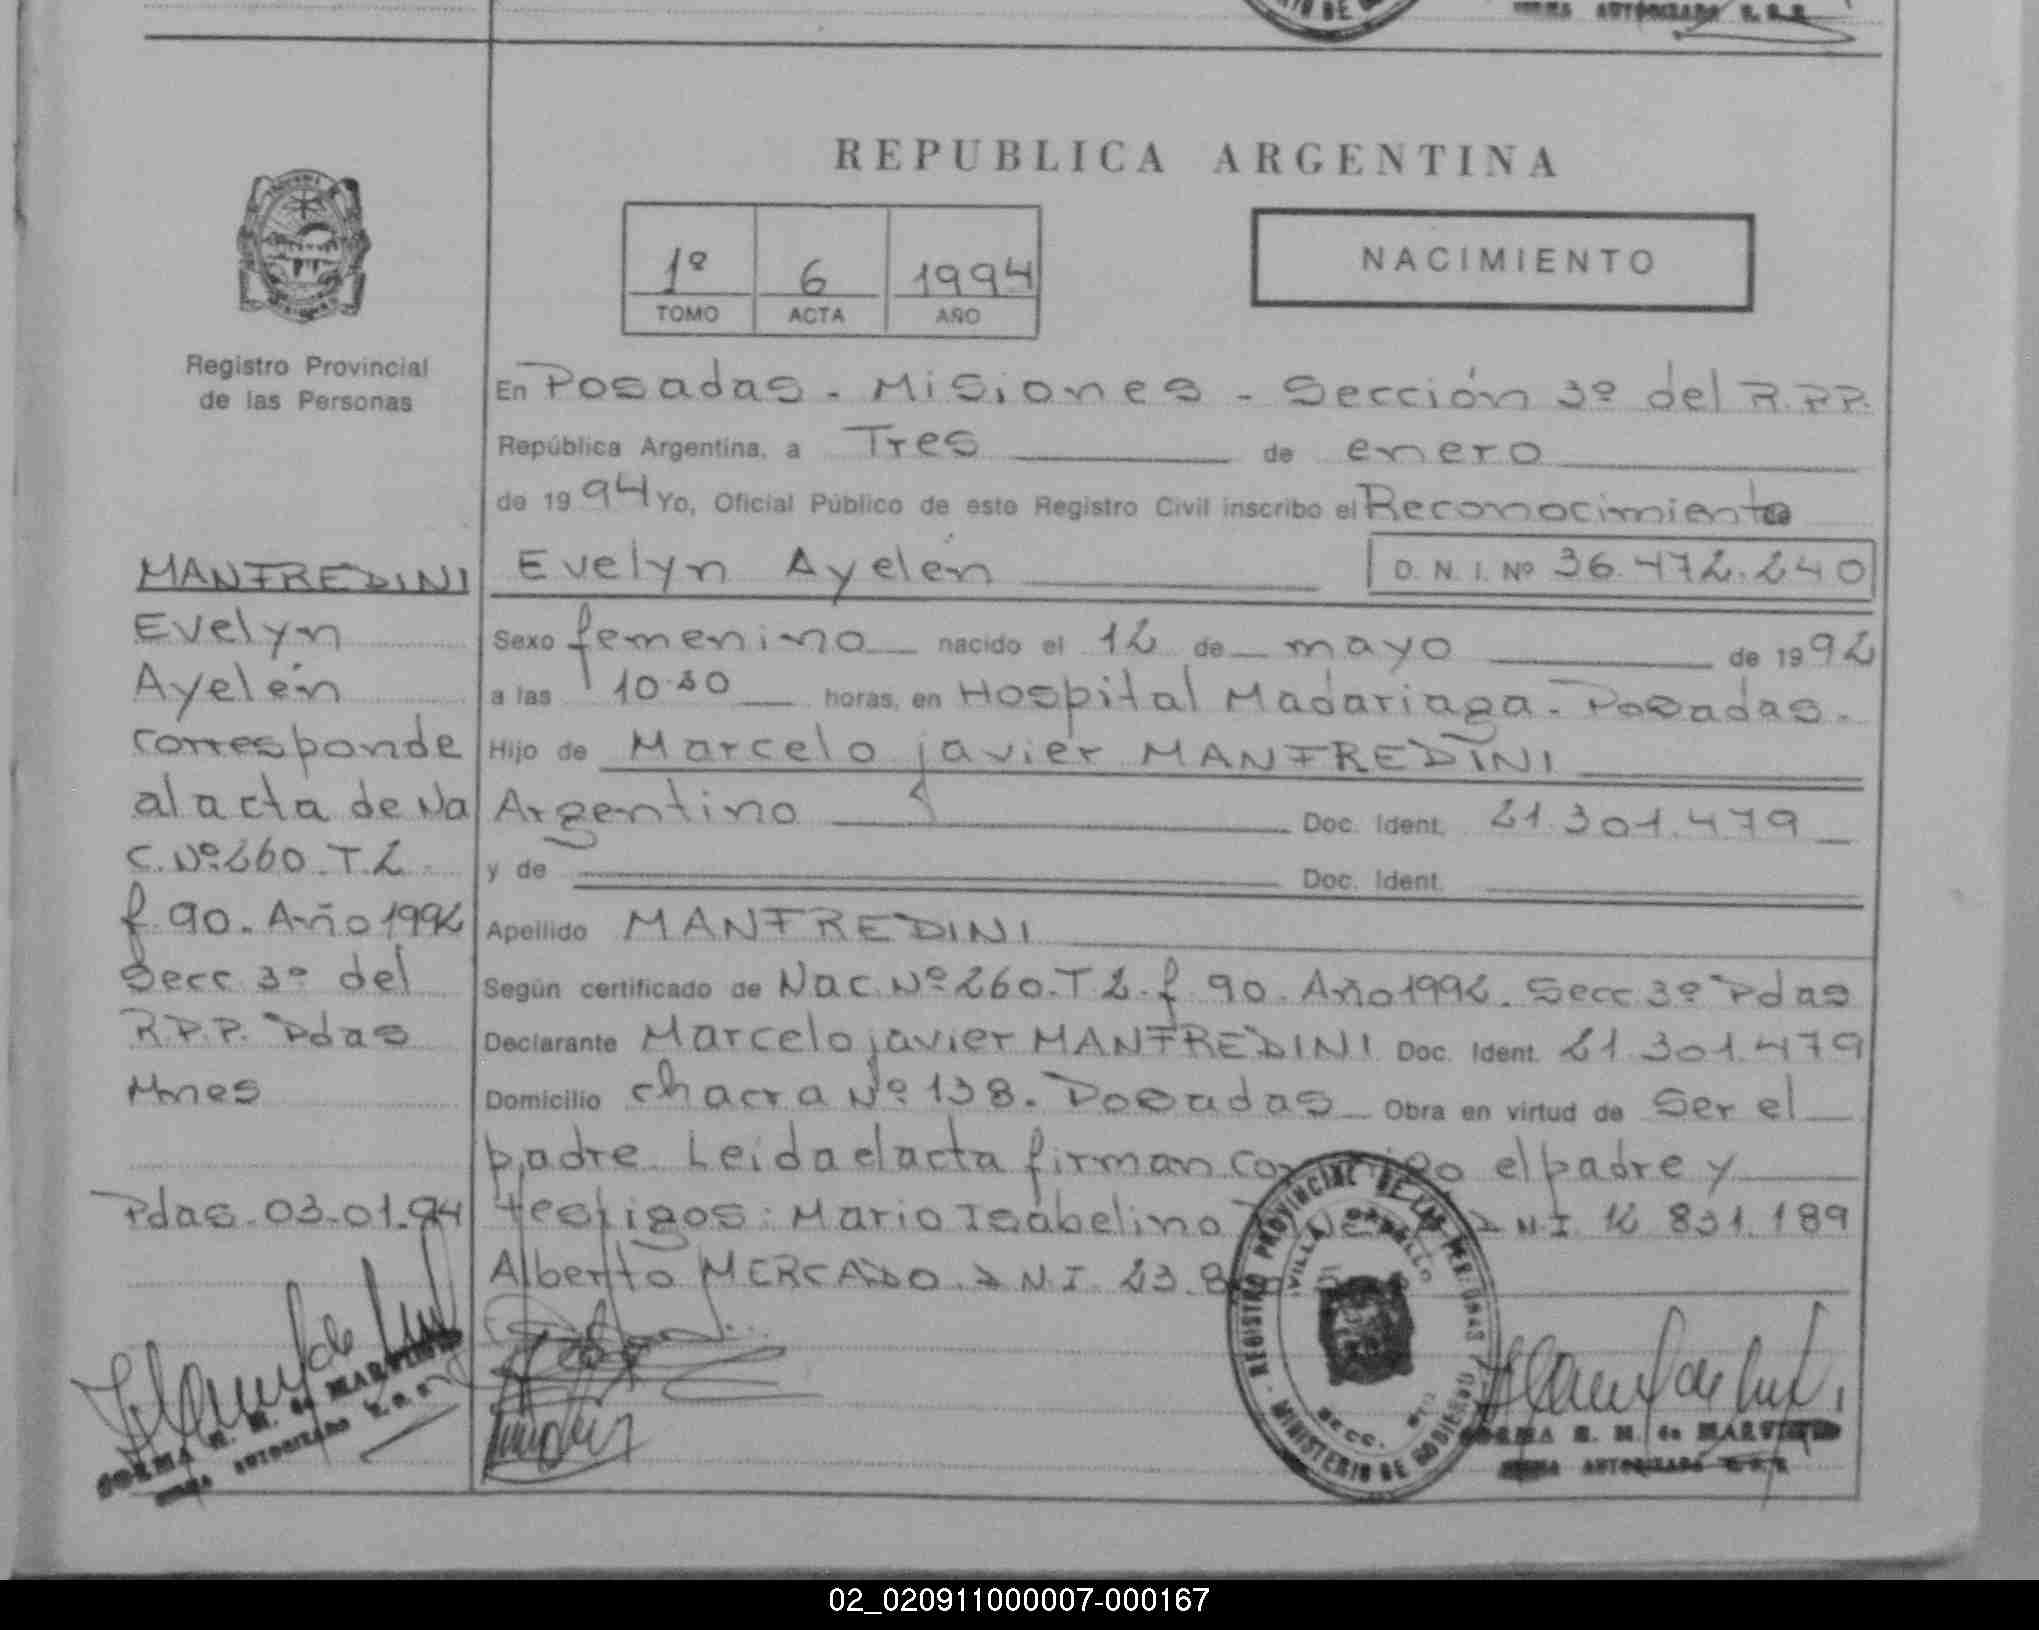 REPUBLICA ARGENTINA
1º 6 1994
TOMO ACTA AÑO
NACIMIENTO
Registro Provincial
de las Personas
En Posadas - Misiones - Sección 3º del R.P.P.
República Argentina, a Tres de enero
de 1994 Yo, Oficial Público de este Registro Civil inscribo el Reconocimiento
Evelyn Ayelén D.N.I. Nº 36.472.240
Sexo femenino nacido el 12 de mayo de 1992
a las horas, en Hospital Madariaga - Posadas.
Hijo de Marcelo javier MANFREDINI
Argentino Doc. Ident. 21.301.479
y de Doc. Ident.
Apellido MANFREDINI
Según certificado de Nac. Nº 260. T 2. f 90. Año 1992. Secc 3º Pdas
Declarante Marcelo javier MANFREDINI Doc. Ident. 21.301.479
Domicilio chacra Nº 138. Posadas Obra en virtud de Ser el
padre. Leida el acta firman el padre y
testigos: Mario Isabelino D N I 12 831.189
Alberto MERCADO. D N.I. 23.8
MANFREDINI
Evelyn
Ayelén
corresponde
al acta de Na
c. Nº 260. T. 2
f. 90. Año 1992
Secc. 3º del
R.P.P. Pdas
Mnes
Pdas. 03.01.94
REGISTRO PROVINCIAL DE LAS PERSONAS
VILLA CABELLO
SECC.
MINISTERIO DE GOBIERNO
NORMA R. M. de MARTINEZ
FIRMA AUTORIZADA
NORMA R. M. de MARTINEZ
FIRMA AUTORIZADA
FIRMA AUTORIZADA
MINISTERIO DE
02_020911000007-000167